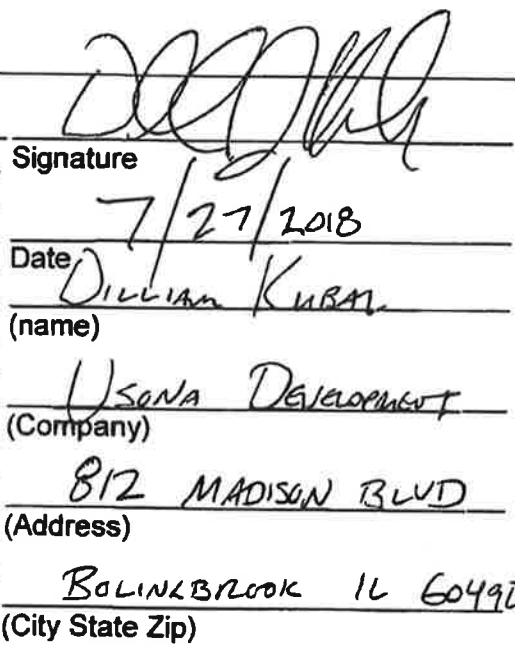 Signature
7/27/2018
Date
William Kubal
(name)
Usona Development
(Company)
812 MADISON BLVD
(Address)
BOLINKBROOK IL
(City State Zip)